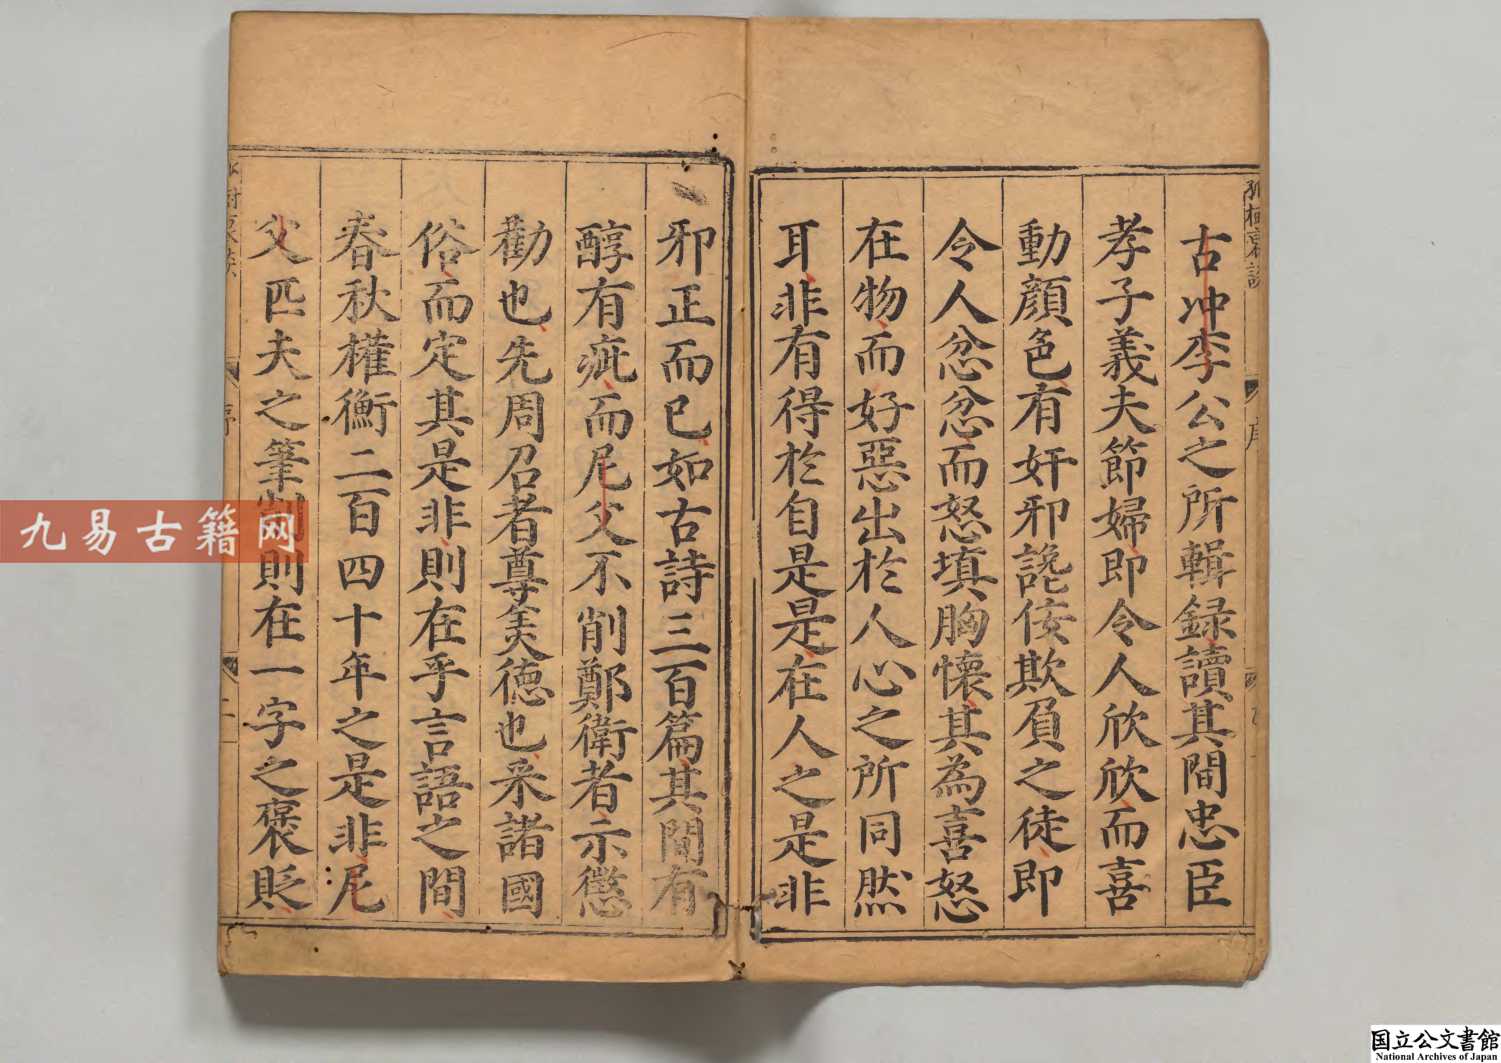 古冲李公之所輯録讀其間忠臣
孝子義夫節婦即令人欣欣而喜
動顔色有奸邪讒侫欺負之徒即
令人忿忿而怒填胸懷其為喜怒
在物而好惡出於人心之所同然
耳非有得於自是是在人之是非
邪正而已如古詩三百篇其間有
醇有疵而尼父不削鄭衛者示懲
勸也先周召者尊美德也釆諸國
俗而定其是非則在乎言語之間
春秋權衡二百四十年之是非尼
父匹夫之筆削則在一字之褒貶
序
二
九易古籍网
国立公文書館
National Archives of Japan